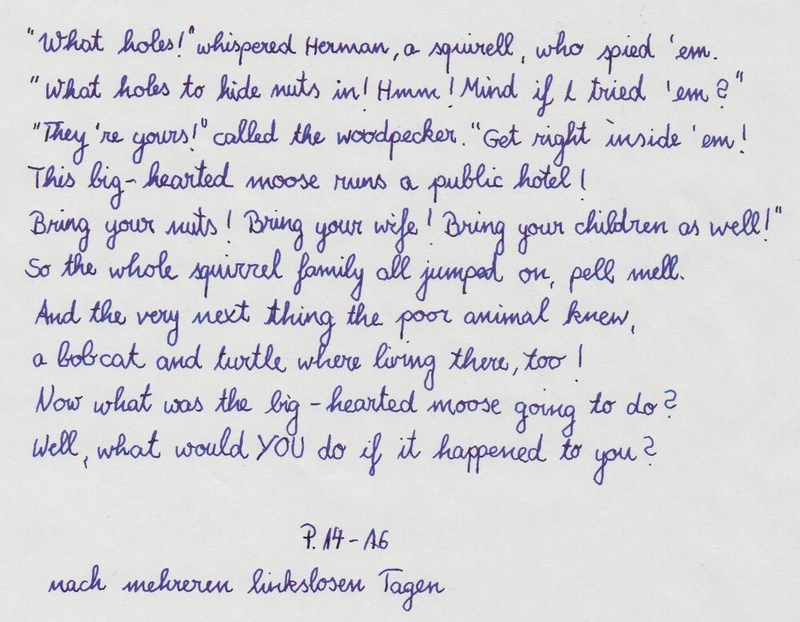 "What holes!" whispered Herman, a squirell, who spied 'em.
"What holes to hide nuts in! Hmm! Mind if I tried 'em?"
"They're yours!" called the woodpecker. "Get right inside 'em!
This big-hearted moose runs a public hotel!
Bring your nuts! Bring your wife! Bring your children as well!"
So the whole squirrel family all jumped on, pell mell.
And the very next thing the poor animal knew,
a bobcat and turtle where living there, too!
Now what was the big-hearted moose going to do?
Well, what would YOU do if it happened to you?
P. 14-16
nach mehreren linkslosen Tagen